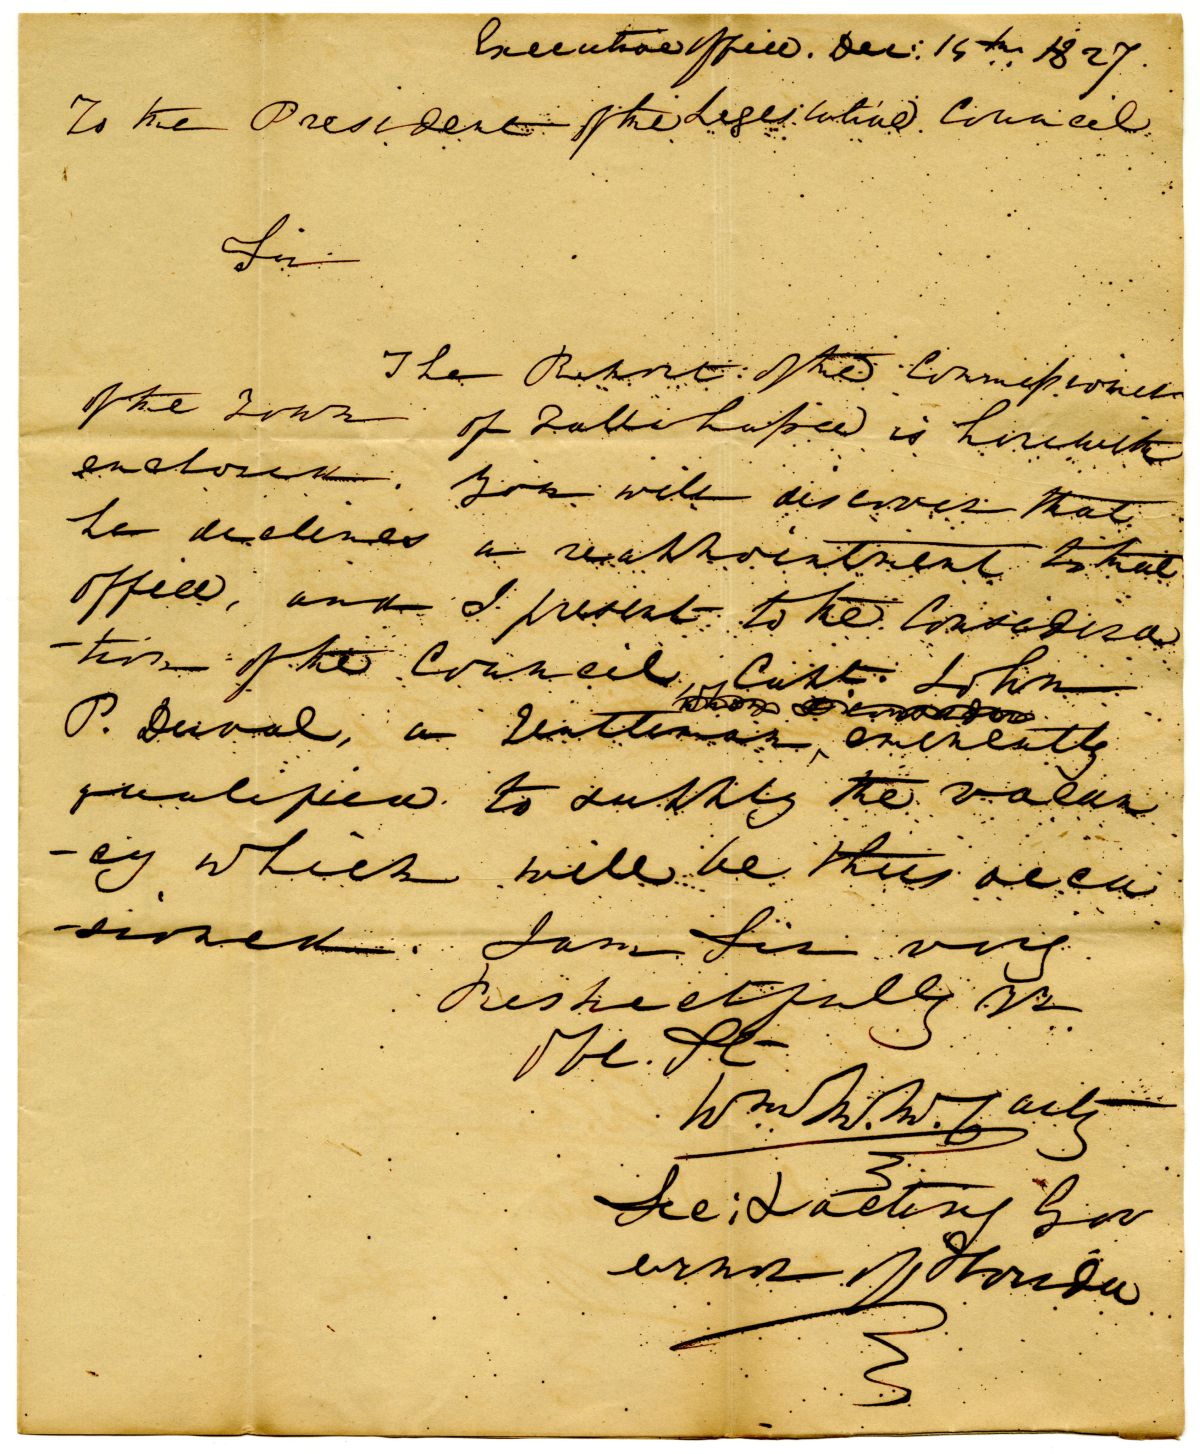 Executive Office. Dec: 15th 1827.
To the President of the Legislative Council
Sir
The Report of the Commissioner
of the Town of Tallahassee is herewith
enclosed. You will discover that
he declines a reappointment to that
office, and I present to the Considera
-tion of the Council, Capt. John
P. Duval, a Gentleman, eminently
qualified to supply the vacan
-cy which will be thus occa
-sioned. I am Sir very
Respectfully Yr
Obe. St
Wm M. McCarty
Sec: & acting Gov
ernor of Florida